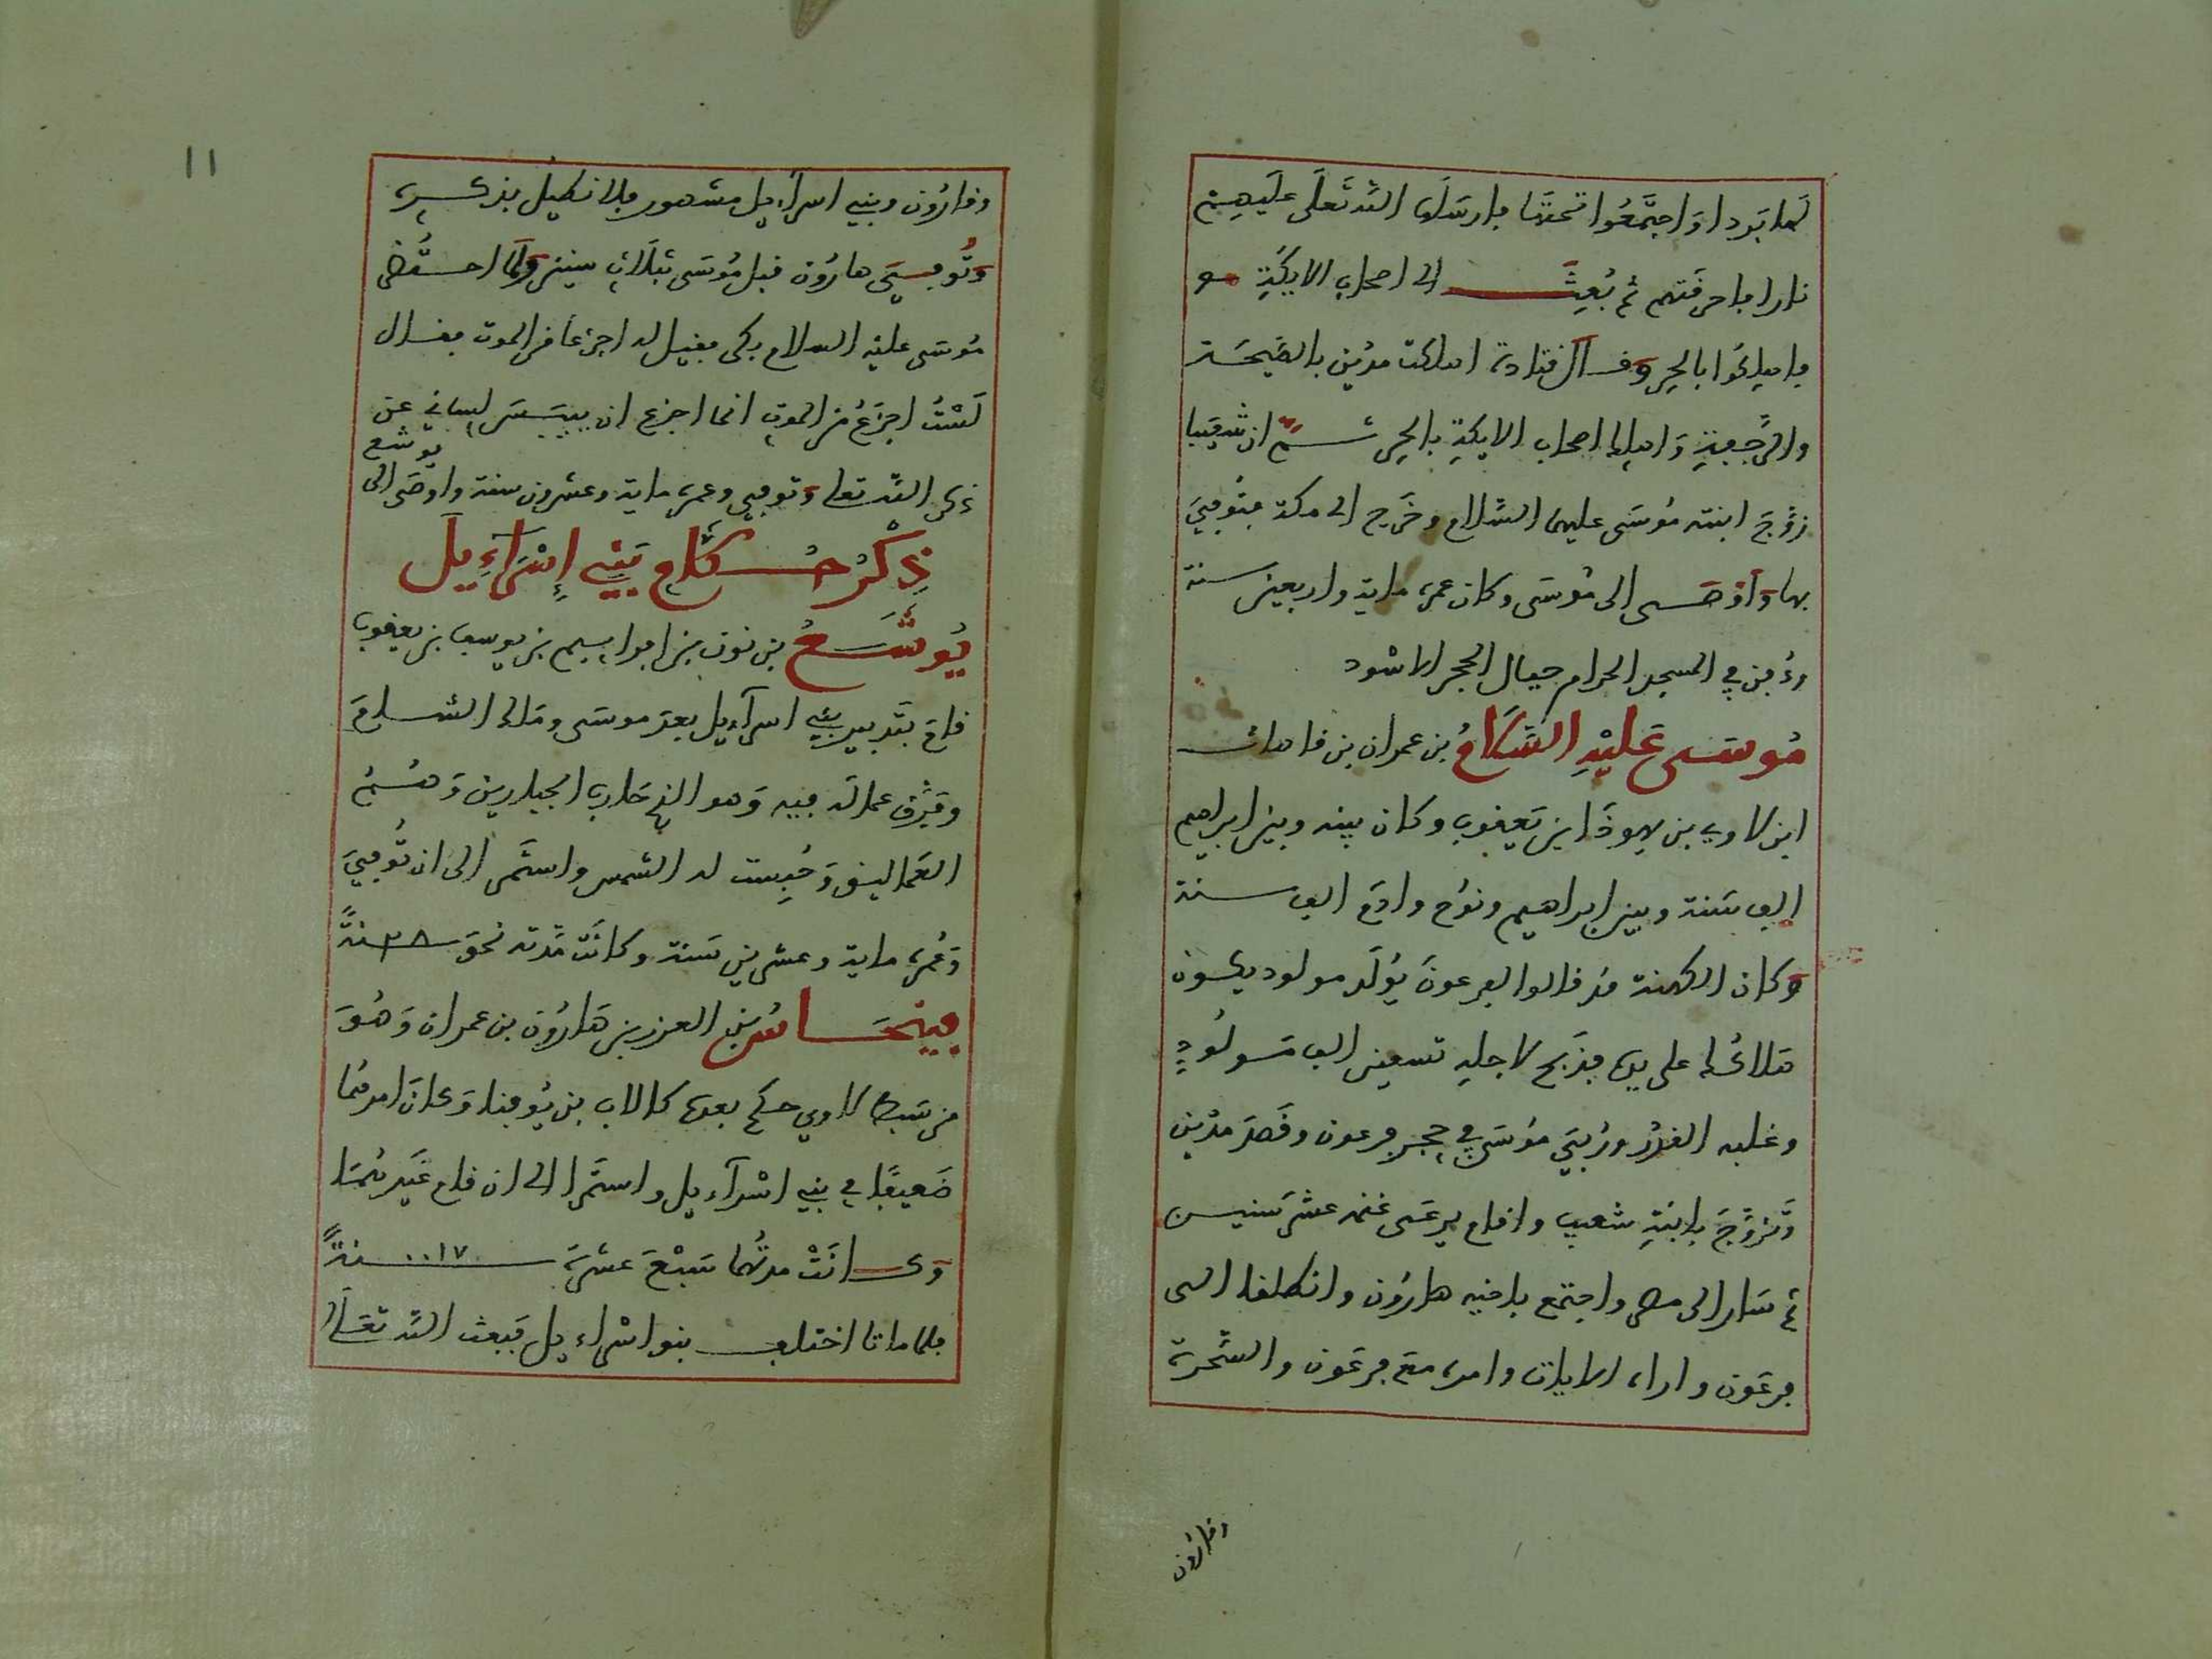 لها بردا وَاجتَمَعُوا تحتها فارسَلَ اللَّه تَعَلَى عليهِم
نارا فاحرقتهم ثم بُعِثَ الى اصحاب الايكَةِ
فاهلكُوا بالحر وقال قتادة اهلكت مدين بالصَّيحَة
والرَّجفةِ وَاهلك اصحاب الايكةِ بالحر ثم ان شعَيبا
زوَّجَ ابنته مُوسَى عليهما السَّلام وخَرج الى مكة فتُوفِيَ
بها وَاَوْصَى الى مُوسَى وكان عمره ماية واربعين سنة
ودُفِن في المسجد الحرام حيال الحجر الاسْود
مُوسَى عَلَيْهِ السَّلَامُ بن عمران بن قاهاث
ابن لاوي بن يهوذَا ابن يَعقوب وكان بينه وبين ابراهيم
الف سَنة وبين ابراهيم ونوح وادَم الف سنة
وكان الكهنة قد قالوا لفرعونَ يُولَد مولود يكون
هلاكُك على يده فذبَح لاجلهِ تسعين الف مَولُودٍ
وغلبه القدَرُ ورُبِيَ مُوسَى في حجر فرعون وقصَدَ مدْين
وَتزَوَّجَ بابنةِ شعيب واقام يرعَى غنمه عشْرَ سنين
ثم سَار الى مصر واجتمع باخيه هارُون وانطلقا الى
فرعَون واراه الايات وامره معَ فرعَون والسَّحرة
وقارُون
وقارُون وبني اسرآءيل مشهور فلا نطيل بذكره
وَتُوفِيَ هارُون قبل مُوسَى بثلَاثِ سنين وَلَمَّا احتُضِر
مُوسَى عليه السلام بكى فقيل له اجزعاً من الموت فقال
لَسْتُ اجزَعُ من الموتِ انما اجزع ان ييبَسَ لساني عن
ذكر اللَّه تعلى وتوفي وعمره ماية وعشرون سنة واوصَى الى يوشع
ذِكْرُ حُكَّامِ بَنِي إِسْرَآءِيلَ
يُوشَعُ بن نون بن افراييم بن يوسف بن يعقوب
قامَ بتَدبير بني اسرآءيل بعدَ موسَى وملك الشام
وفَرَّق عماله فيه وَهو الذي حَارب الجبارين وَهُمُ
العَماليق وَحُبِست له الشمس واستَمَر الى ان تُوفِيَ
وَعُمره ماية وعشرين سَنة وكانَت مُدَّته نحوَ ٢٨ سنةً
فينحَاسُ بن العزر بن هَارُون بن عمران وَهُوَ
من سَبط لاوي حكم بعده كالاب بن يُوفنا وَكانَ امرهُما
ضَعيفًا في بني اسْرآءيل واستَمَرا الى ان قام غَيرهُمَا
وَكانَتْ مدتُهما سَبْعَ عشرَة ١٧ سنةً
فلما ماتا اختلف بنو اسْراءيل فَبعث اللَّه تعَالى
١١